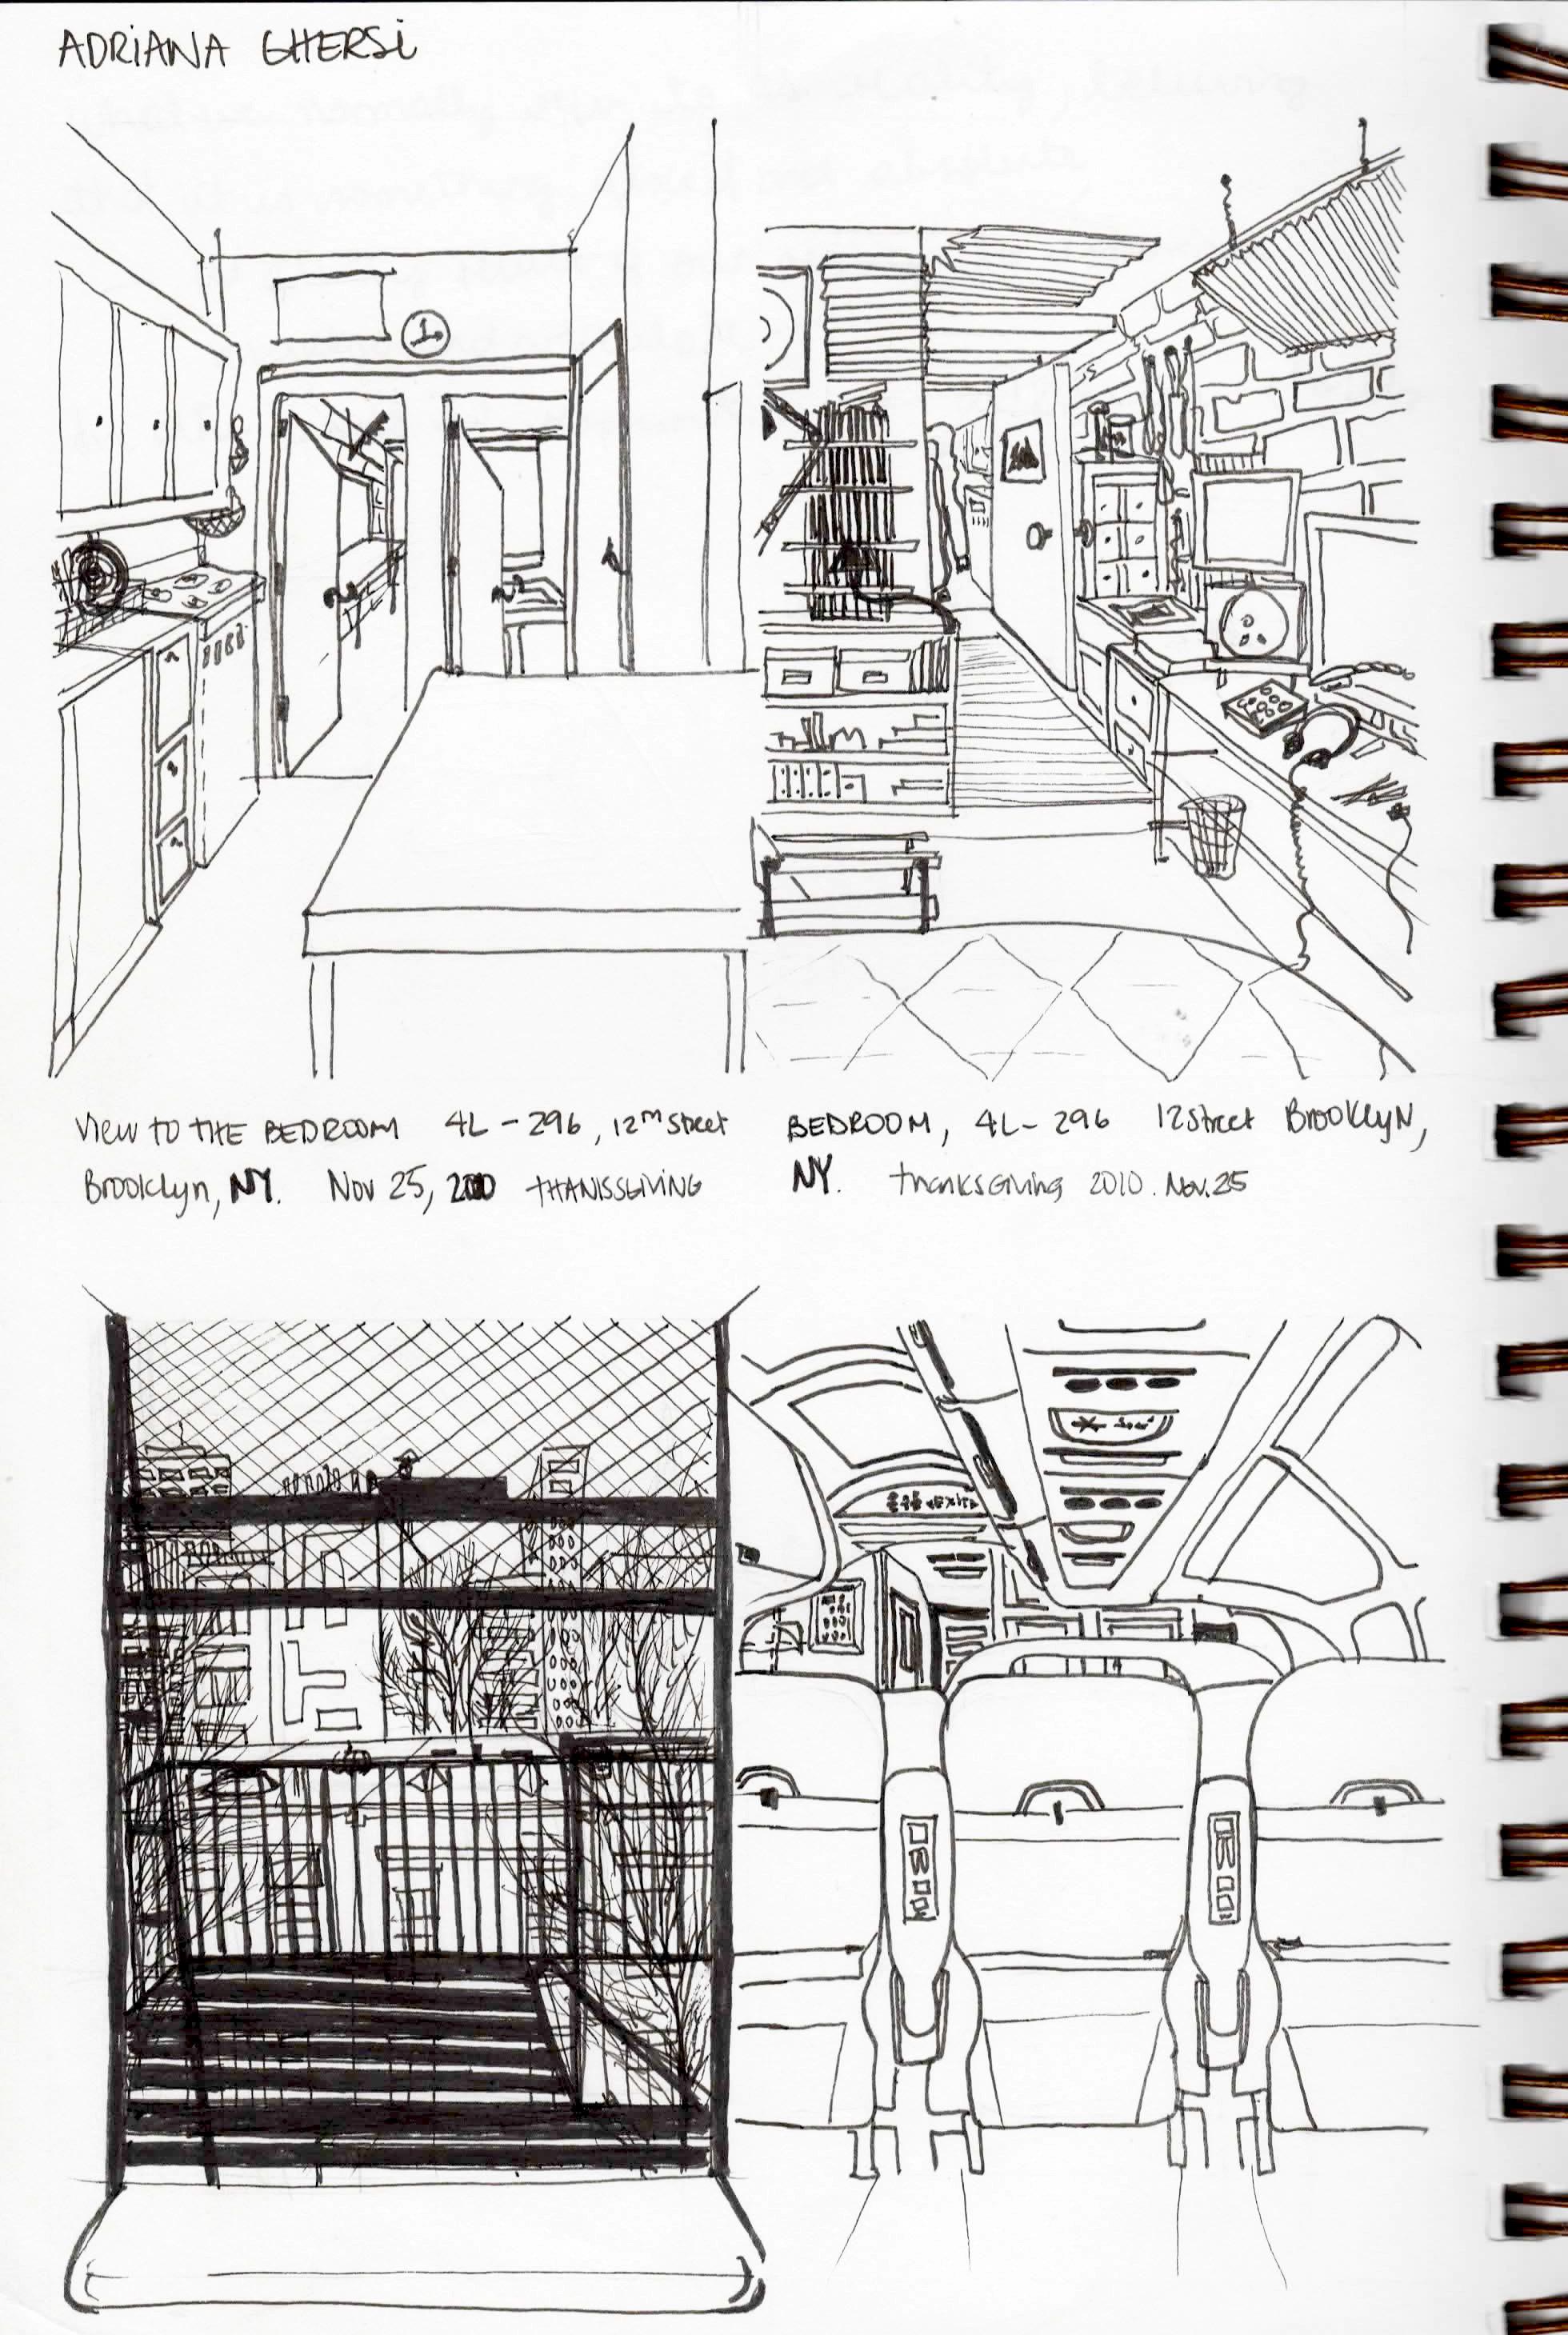 ADRIANA GHERSI
View TO THE BEDROOM 4L - 296, 12th Street
Brooklyn, NY. Nov 25, 2010 THANKSGIVING
BEDROOM, 4L - 296 12 Street BrooklyN,
NY. thanksGiving 2010. Nov. 25
EXIT